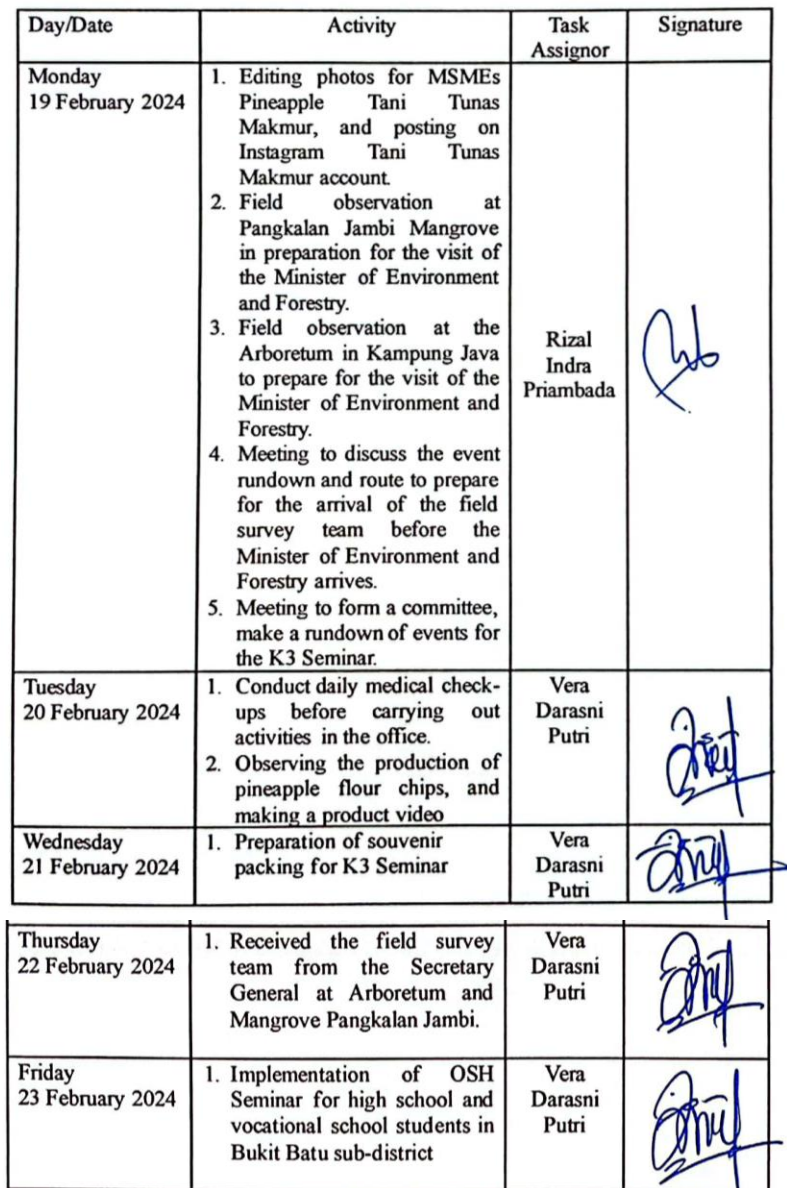 Day/Date Activity Task Assignor Signature
Monday
19 February 2024
1. Editing photos for MSMEs
Pineapple Tani Tunas
Makmur, and posting on
Instagram Tani Tunas
Makmur account.
2. Field observation at
Pangkalan Jambi Mangrove
in preparation for the visit of
the Minister of Environment
and Forestry.
3. Field observation at the
Arboretum in Kampung Java
to prepare for the visit of the
Minister of Environment and
Forestry.
4. Meeting to discuss the event
rundown and route to prepare
for the arrival of the field
survey team before the
Minister of Environment and
Forestry arrives.
5. Meeting to form a committee,
make a rundown of events for
the K3 Seminar.
Rizal
Indra
Priambada
Tuesday
20 February 2024
1. Conduct daily medical check-
ups before carrying out
activities in the office.
2. Observing the production of
pineapple flour chips, and
making a product video
Vera
Darasni
Putri
Wednesday
21 February 2024
1. Preparation of souvenir
packing for K3 Seminar
Vera
Darasni
Putri
Thursday
22 February 2024
1. Received the field survey
team from the Secretary
General at Arboretum and
Mangrove Pangkalan Jambi.
Vera
Darasni
Putri
Friday
23 February 2024
1. Implementation of OSH
Seminar for high school and
vocational school students in
Bukit Batu sub-district
Vera
Darasni
Putri